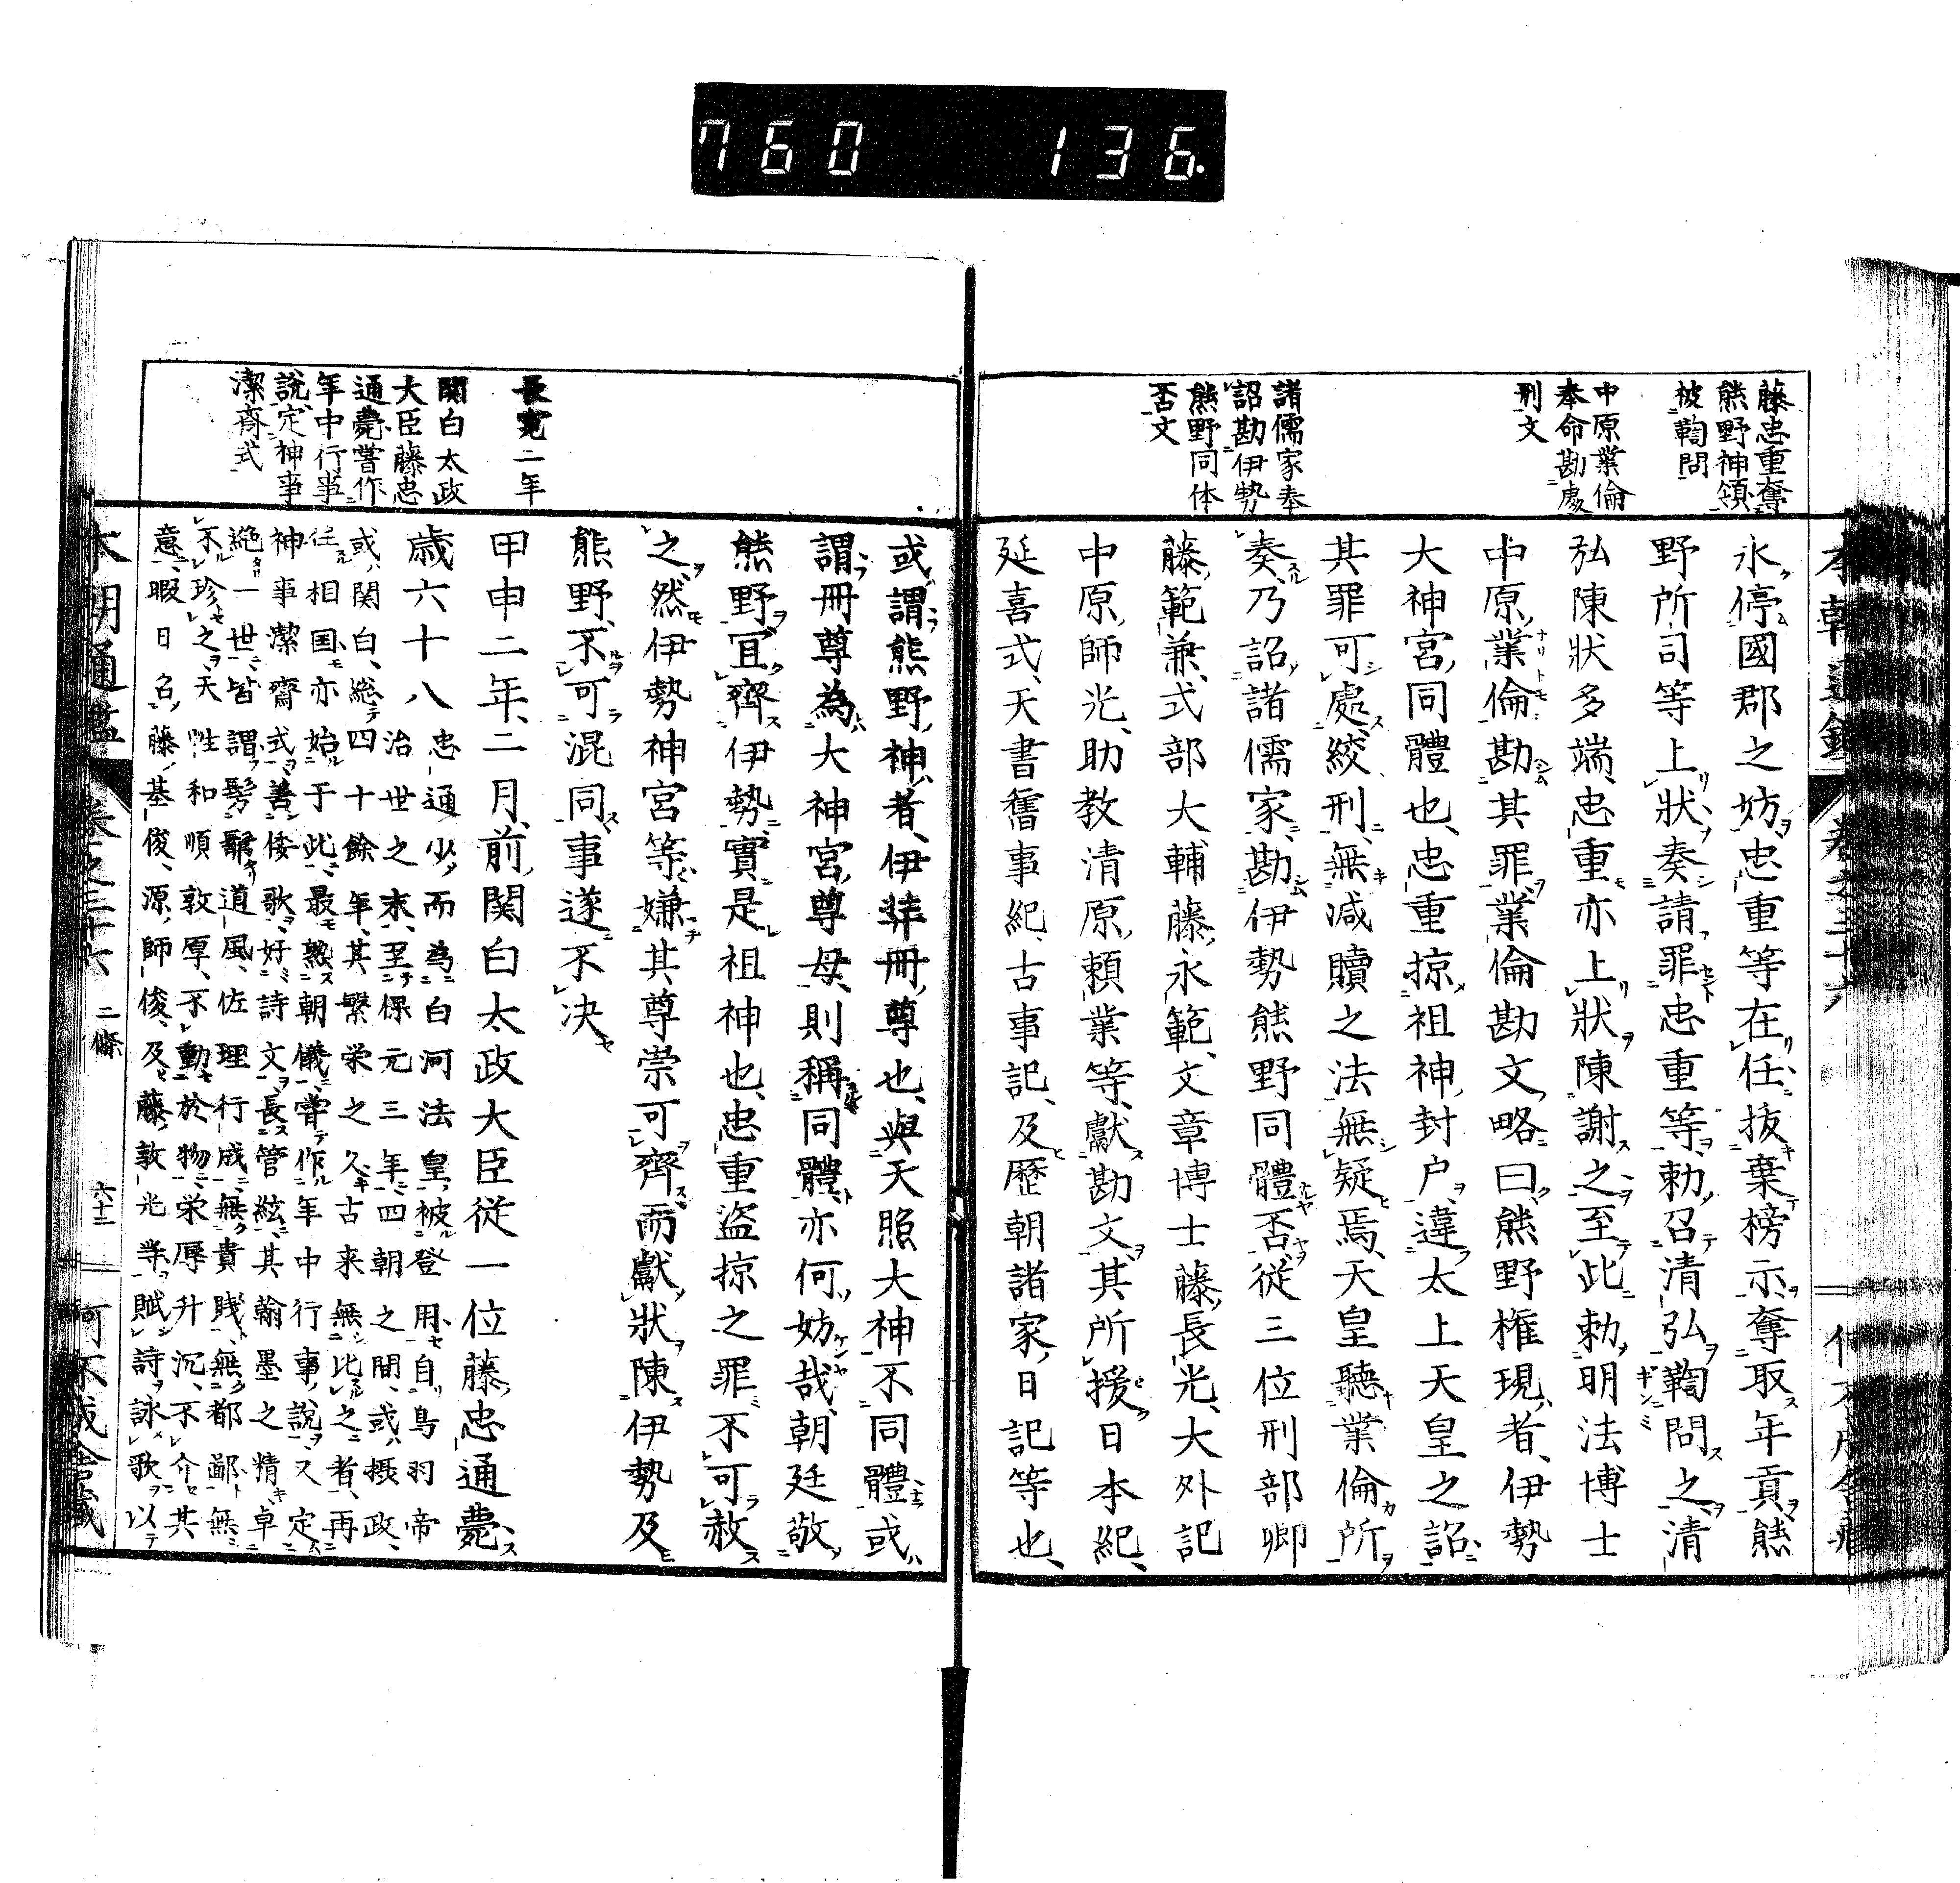 760 136.
藤忠重奪
熊野神領
被鞫問
中原業倫
奉命勘處
刑文
諸儒家奉
詔勘伊勢
熊野同体
否文
永停國郡之妨忠重等在任抜棄榜示奪取年貢熊
野所司等上狀奏請罪忠重等勅召清弘鞫問之清
弘陳狀多端忠重亦上狀陳謝之至此勅明法博士
中原業倫勘其罪業倫勘文略曰熊野権現者伊勢
大神宮同體也忠重掠祖神封户違太上天皇之詔
其罪可處絞刑無減贖之法無疑焉天皇聽業倫所
奏乃詔諸儒家勘伊勢熊野同體否従三位刑部卿
藤範兼式部大輔藤永範文章博士藤長光大外記
中原師光助教清原頼業等獻勘文其所援日本紀
延喜式天書舊事紀古事記及歷朝諸家日記等也
長寛二年
関白太政
大臣藤忠
通薨嘗作
年中行事
説定神事
潔齊式
或謂熊野神者伊弉冊尊也與天照大神不同體或
謂冊尊為大神宮尊母則稱同體亦何妨哉朝廷敬
熊野冝齊伊勢實是祖神也忠重盗掠之罪不可赦
之然伊勢神宮等嫌其尊崇可齊而獻狀陳伊勢及
熊野不可混同事遂不决
甲申二年二月前関白太政大臣従一位藤忠通薨
歳六十八
忠通少而為白河法皇被登用自鳥羽帝
治世之末至保元三年四朝之間或摂政
或関白総四十餘年其繁栄之久古来無比之者再
任相国亦始于此最熟朝儀嘗作年中行事説又定
神事潔齋式善倭歌好詩文長管絃其翰墨之精卓
絶一世皆謂髣髴道風佐理行成無貴賎無都鄙無
不珍之天性和順敦厚不動於物栄辱升沉不介其
意暇日召藤基俊源師俊及藤敦光等賦詩詠歌以
本朝通鑑 卷之三十六 二條 六十二